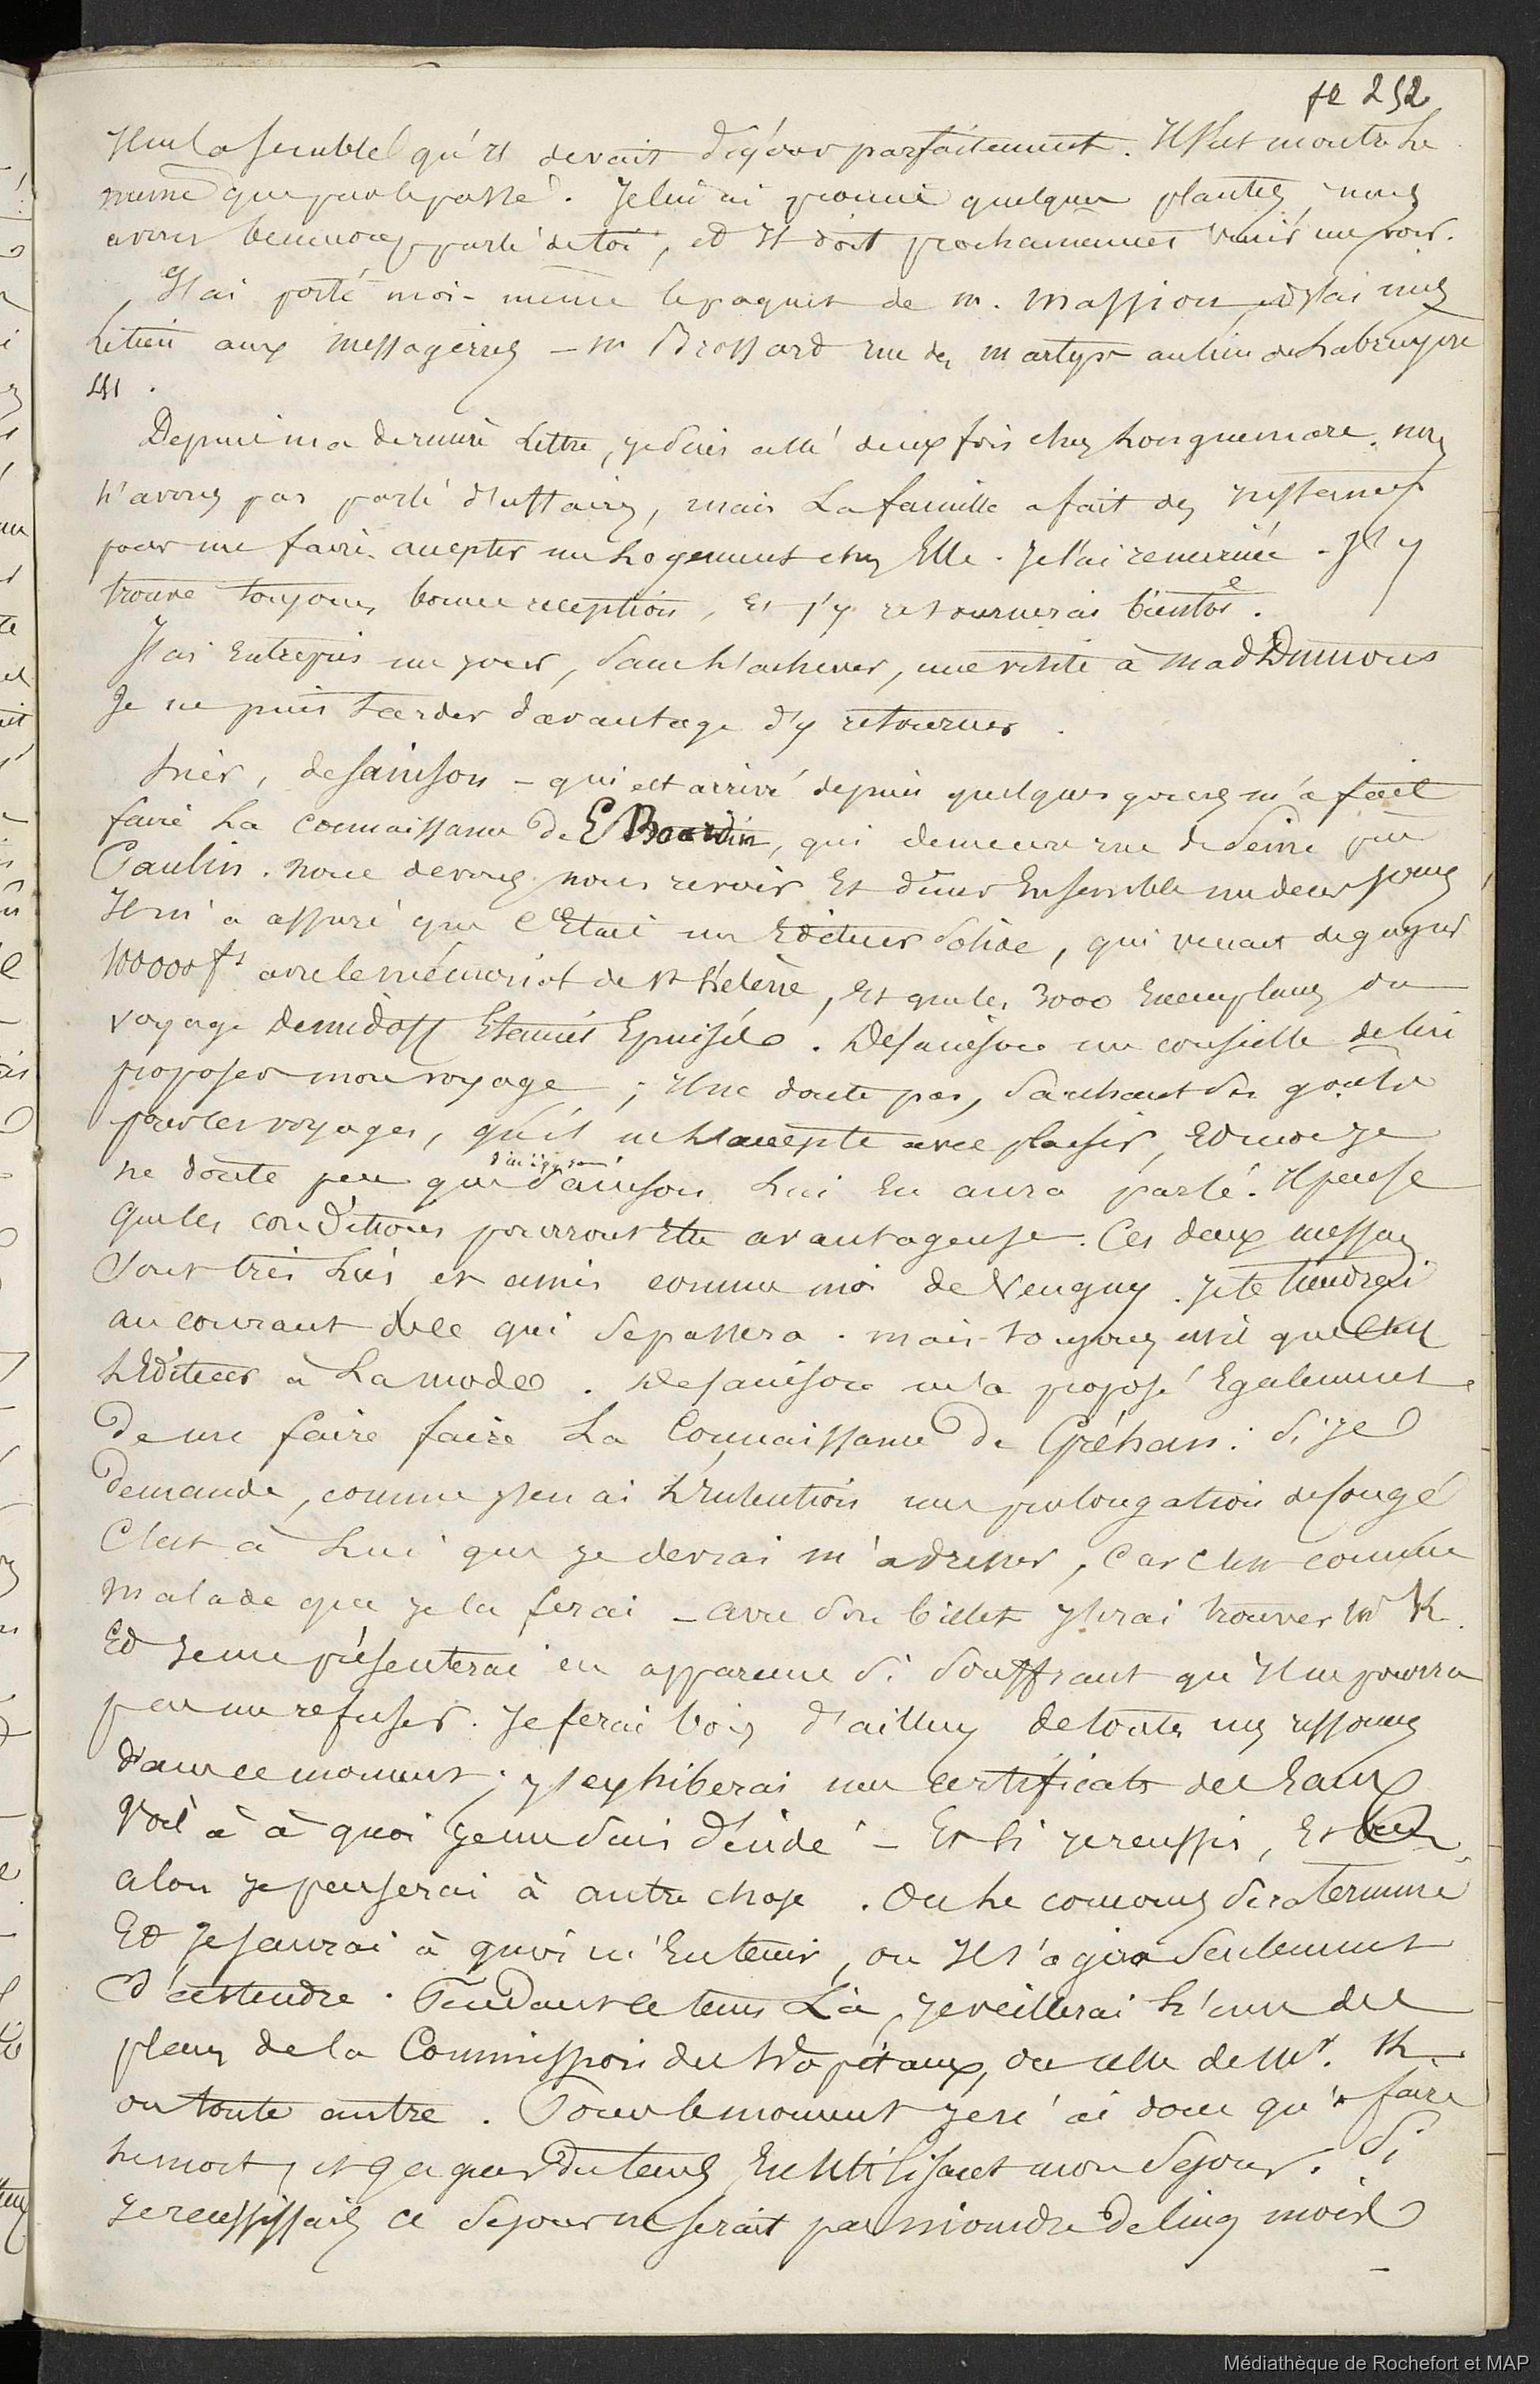 fo 252
Il m'a semblé qu'il devait digérer parfaitement. Il s'est montré le
même que par le passé. Je lui ai promis quelques plantes, nous
avons beaucoup parlé de toi, et il doit prochainement venir me voir.
J'ai porté moi-même le paquet de M. Massiou, et j'ai mis
le tien aux messageries - M Brossard rue des Martyrs au lieu de Labruyere
Depuis ma derniere Lettre, je suis allé deux fois chez Longuemare. nous
n'avons pas parlé d'affaires, mais La famille a fait des instances
pour me faire accepter un Logement chez Elle. Je l'ai remerciée. J'y
trouve toujours bonne reception, et j'y retournerai bientot.
J'ai Entrepris un jour, sans l'achever, une visite à Mad
Je ne puis tarder davantage d'y retourner.
hier, de Sainson - qui est arrivé depuis quelques jours m'a fait
faire La Connaissance De E Bourdin, qui demeure rue de Seine
Paulin. nous devons nous revoir Et diner Ensemble un de ces jours
Il m'a assuré que C'Etait un Editeur Solide, qui venait de gagner
100000 fs avec le mémorial de Ste hélène, Et que les 3000 Exemplaires du
voyage Demidoff Etaient Epuisés. De Sainson me conseille de lui
proposer mon voyage; Il ne doute pas, Sachant Ses goûts
pour les voyages, qu'il ne L'accepte avec plaisir, Et moi je
ne doute pas que de Sainson Lui En aura parlé. Il pense
que les conditions pourront Etre avantageuses. Ces deux messrs
Sont très Liés et amis comme moi de Neugny. Je te tiendrai
au courant de ce qui Se passera. mais toujours est il que C'est
L'Editeur à La mode. De Sainson m'a proposé Egalement
De me faire faire La Connaissance De Gréhan: Si je
Demande, comme j'en ai L'Intention une prolongation de Congé
C'est à Lui que je devrai m'adresser, Car c'est comme
malade que je la ferai - avec Son billet j'irai trouver Mr K.
Et je me présenterai en apparence Si Souffrant qu'Il ne pourra
pas me refuser. Je ferai bois d'ailleurs de toutes mes ressources
dans ce moment; j'exhiberai mes certificats des Eaux
Voilà à quoi je me Suis décidé - Et Si je reussis, Et bien,
alors je penserai à autre chose. Ou Le concours Sera Terminé
Et Je saurai à quoi m'En tenir, ou Il s'agira Seulement
d'attendre. Pendant ce tems Là, je veillerai L'une des
places de la Commission des hôpitaux, ou celle de Mr. K
ou toute autre. Pour le moment je n'ai donc qu'à faire
Le mort, et gagner du tems En Utilisant mon Sejour. Si
je reussissais ce Sejour ne serait pas moindre De Cinq mois